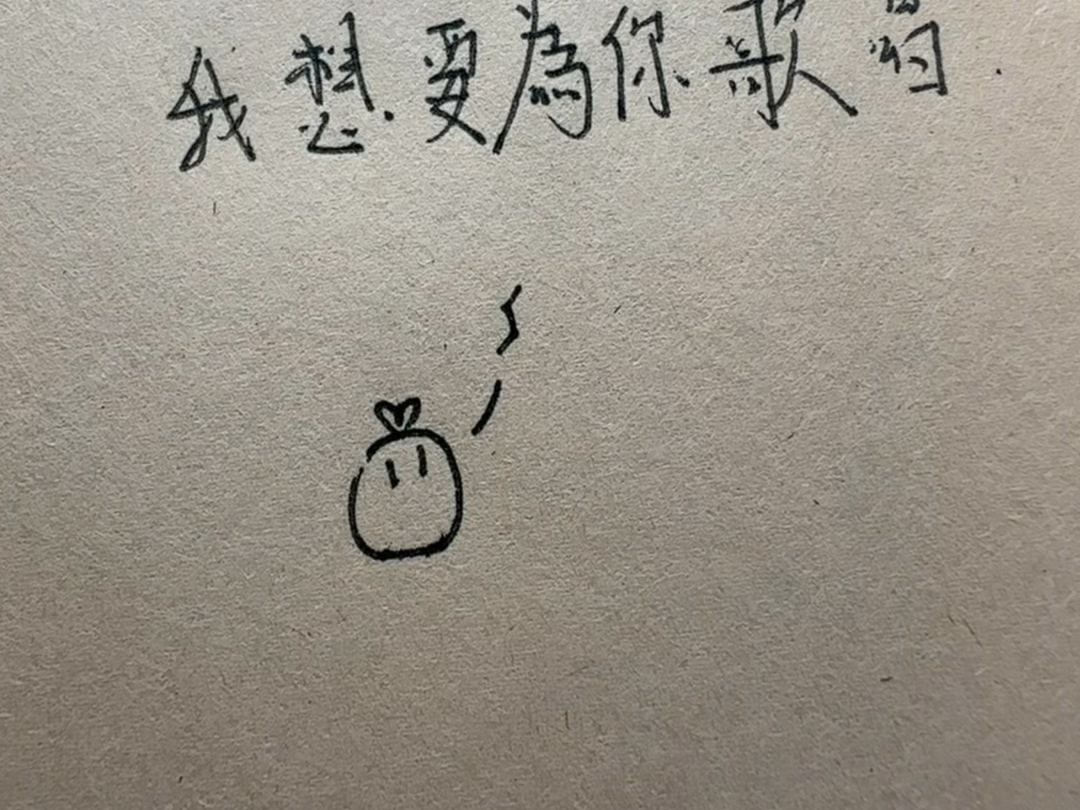 我想要為你歌唱.